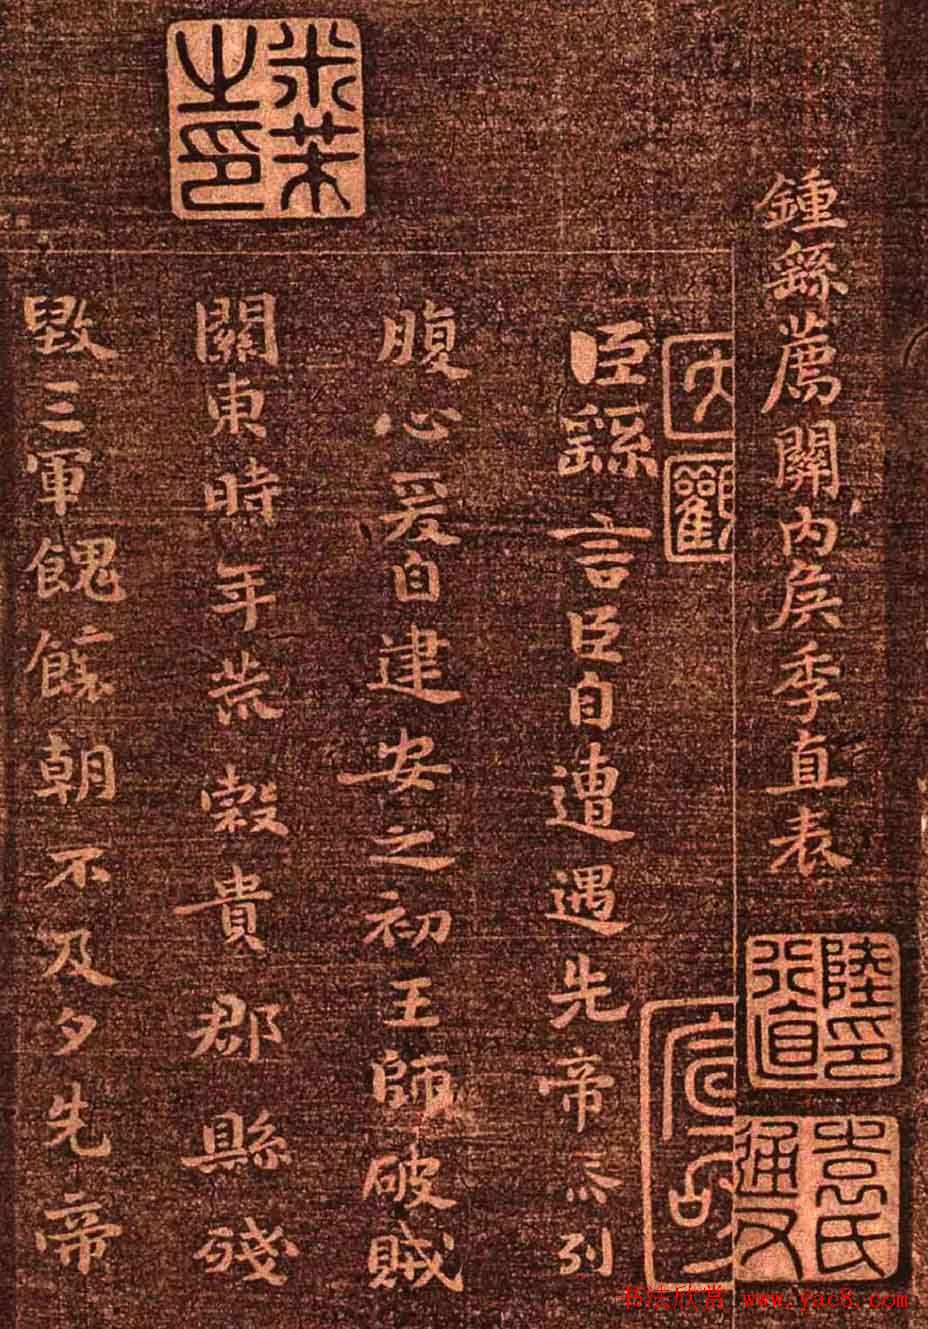 鍾繇薦關内矦季直表
陸印行直
袁氏
大觀
臣繇言臣自遭遇先帝忝列
腹心爰自建安之初王師破賊
關東時年荒穀貴郡縣殘
毀三軍餽饟朝不及夕先帝
米芾之印
书法欣赏 www.yac8.com